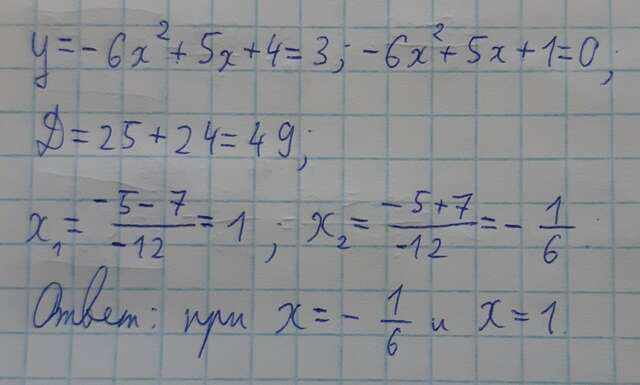 y = -6x² + 5x + 4 = 3; -6x² + 5x + 1 = 0;
D = 25 + 24 = 49;
x₁ = (-5 - 7)/(-12) = 1; x₂ = (-5 + 7)/(-12) = -1/6
Ответ: при x = -1/6 и x = 1.